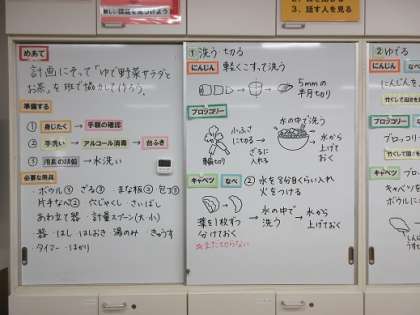 3. 話す人を見る
めあて
計画にそって「ゆで野菜サラダと
お茶」を班で協力して作ろう。
準備する
① 身じたく → 手順の確認
② 手洗い → アルコール消毒 → 台ふき
③ → 水洗い
必要な用具
ボウル③ ざる③ まな板③ 包丁③
片手なべ② 穴じゃくし さいばし
あわ立て器 計量スプーン(大 小)
器 はし はしおき 湯のみ きゅうす
タイマー はかり
① 洗う 切る
にんじん 軽くこすって洗う
5mmの
半月切り
ブロッコリー
小ふさ
に切る
ざるに
入れる
水の中で洗う
水から
上げて
おく
キャベツ なべ ② 水を8分目くらい入れ
火をつける
葉を1枚ずつ
分けておく
水の中で
洗う
水から
上げておく
※まだ切らない
② ゆでる
にんじん なべ
にんじんを
竹ぐしで
ブロッコリー
ブロッコ
竹ぐしで
キャベツ
キャベツを
ボウルに